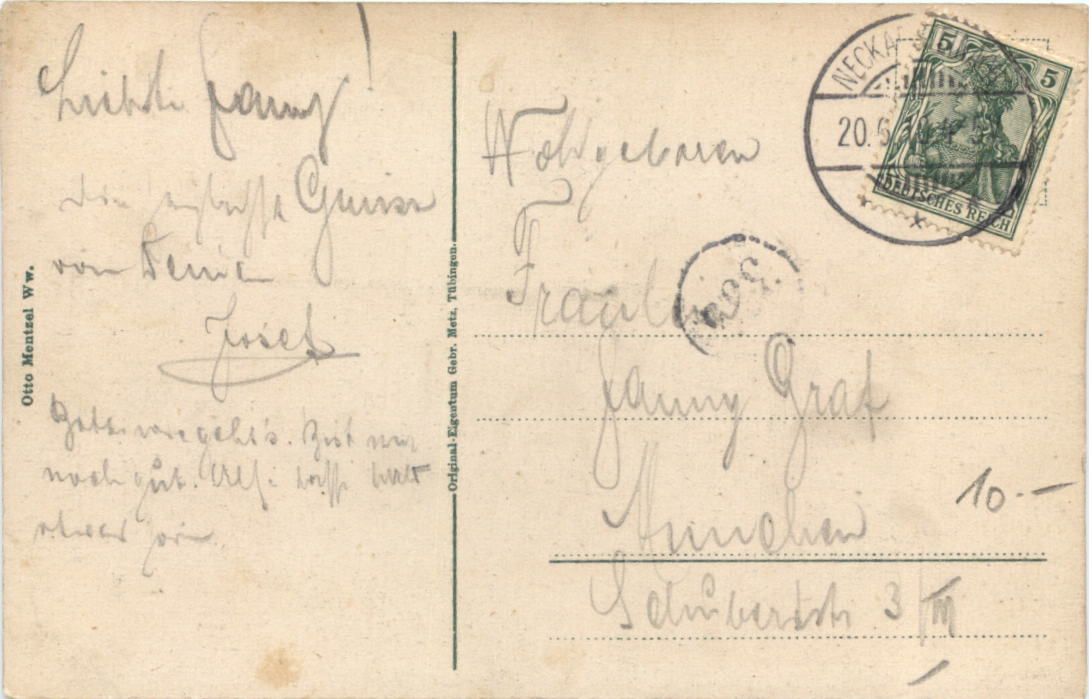 Liebste Fanny!
Die herzlichsten Grüsse
von Deinem
Josef
Bitte wie geht's. Bist mir
noch gut.
Otto Mentzel Ww.
Original-Eigentum Gebr. Metz, Tübingen.
NECKA
20. 6
5 5
DEUTSCHES REICH
Wohlgeboren
Fräulein
Fanny Graf
München
Schubertstr 3/III
10.-